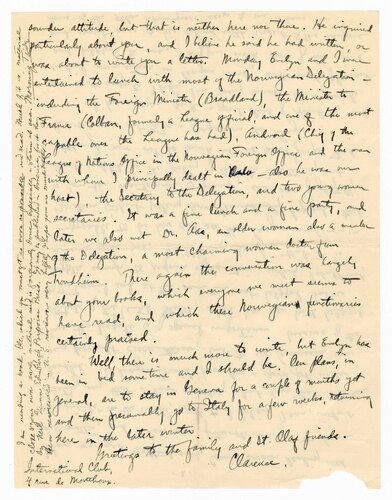 sounder attitude, but that is neither here nor there. He inquired
particularly about you, and I believe he said he had written, or
was about to write you a letter. Monday Evelyn and I were
entertained to lunch with most of the Norwegian Delegation —
including the Foreign Minister (Braadland), the Minister to
France (Colban, formerly a League official, and one of the most
capable ones the League has had), Andvord (Chief of the
League of Nations Office in the Norwegian Foreign Office and the man
with whom I principally dealt in Oslo — also he was our
host), the Secretary to the Delegation, and two young women
secretaries. It was a fine lunch and a fine party, and
later we also met Dr. Aas, an older woman also a member
of the Delegation, a most charming woman doctor from
Trondheim. There again the conversation was largely
about your books, which everyone we meet seems to
have read, and which these Norwegians
certainly praised.
Well there is much more to write, but Evelyn has
been in bed some time and I should be. Our plans, in
general, are to stay in Geneva for a couple of months yet
and then presumably go to Italy for a few weeks, returning
here in the later winter
Greetings to the family and St. Olaf friends.
Clarence.
International Club,
4 rue de Monthoux.
I am mailing a